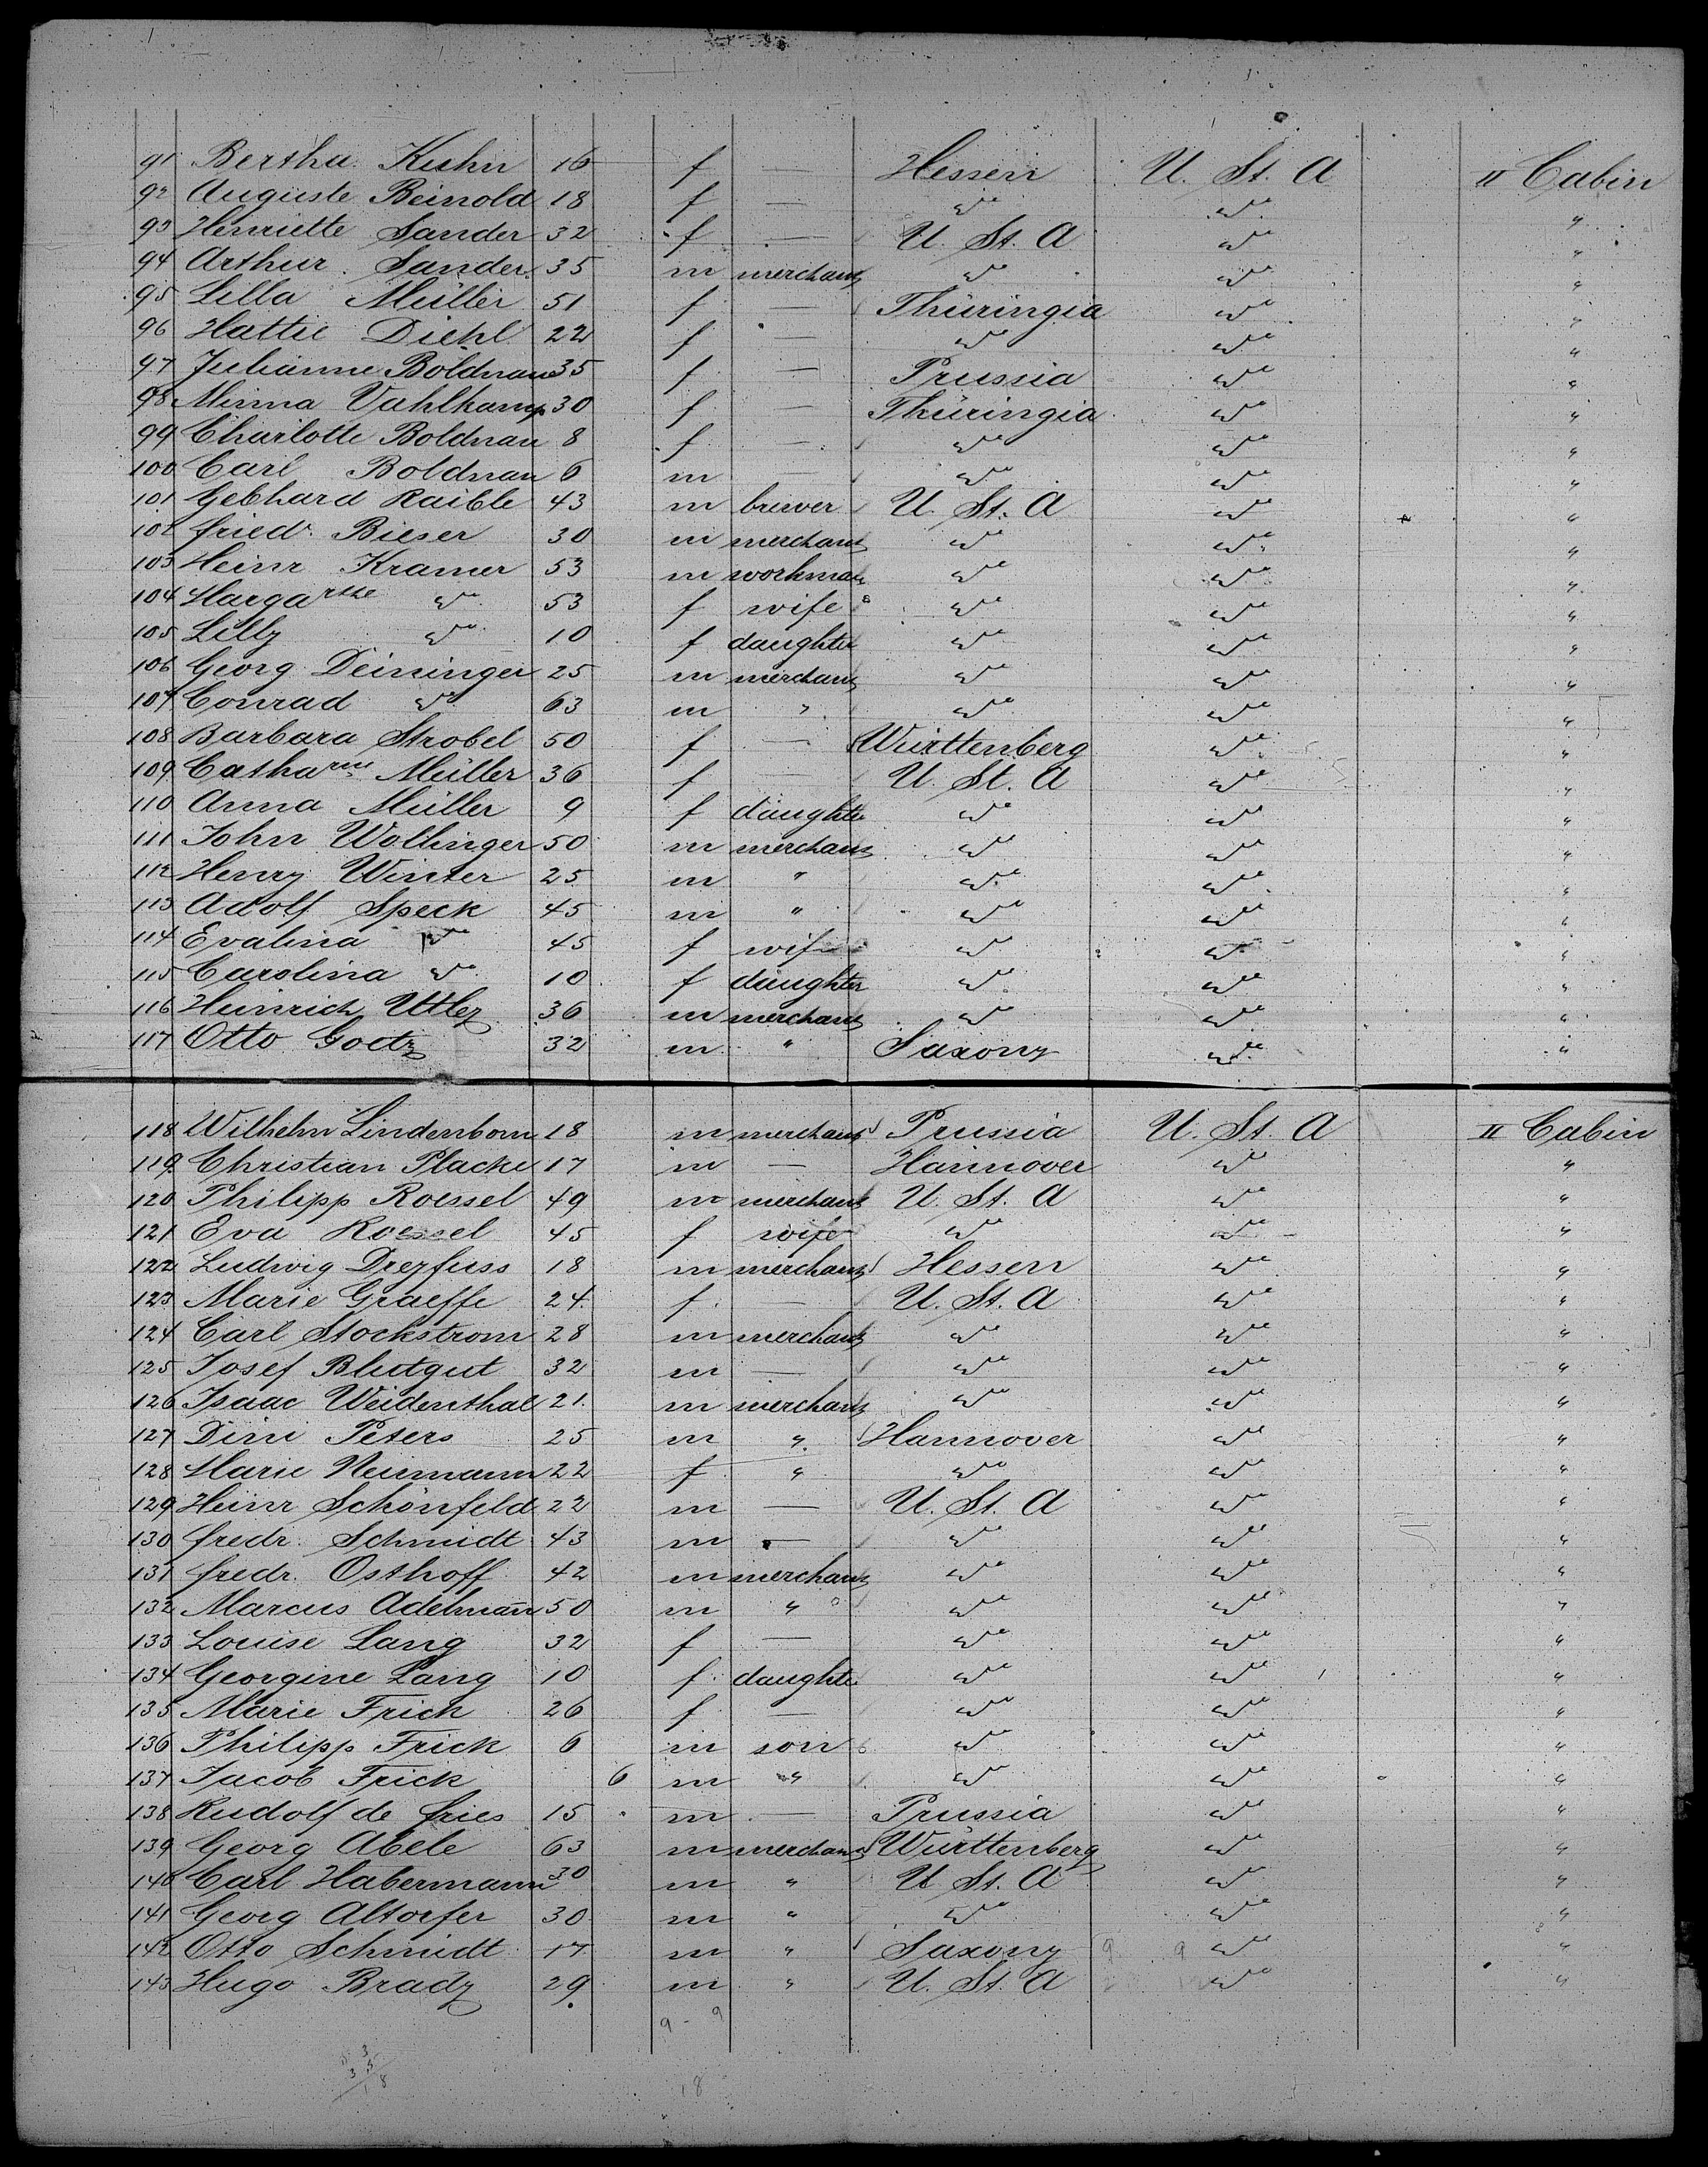 91 Bertha Kuhn 16 f — Hessen U. St. A II Cabin
92 Auguste Beinold 18 f — do do "
93 Henriette Sander 32 f — U. St. A do "
94 Arthur Sander 35 m merchant do do "
95 Lilla Müller 51 f — Thüringia do "
96 Hattie Diehl 22 f — do do "
97 Julianne Boldnau 35 f — Prussia do "
98 Minna Vahlkamp 30 f — Thüringia do "
99 Charlotte Boldnau 8 f — do do "
100 Carl Boldnau 6 m — do do "
101 Gebhard Raible 43 m brewer U. St. A do "
102 Friedr. Bieser 30 m merchant do do "
103 Heinr Kramer 53 m workman do do "
104 Margarthe do 53 f wife do do "
105 Lilly do 10 f daughter do do "
106 Georg Deininger 25 m merchant do do "
107 Conrad do 63 m " do do "
108 Barbara Strobel 50 f — Württenberg do "
109 Catharine Müller 36 f — U. St. A do "
110 Anna Müller 9 f daughter do do "
111 John Wollinger 50 m merchant do do "
112 Henry Winter 25 m " do do "
113 Adolf Speck 45 m " do do "
114 Evalina do 45 f wife do do "
115 Carolina do 10 f daughter do do "
116 Heinrich Uttley 36 m merchant do do "
117 Otto Goetz 32 m " Saxony do "
118 Wilhelm Lindenborn 18 m merchant Prussia U. St. A II Cabin
119 Christian Placke 17 m — Hannover do "
120 Philipp Roessel 49 m merchant U. St. A do "
121 Eva Roessel 45 f wife do do "
122 Ludwig Dreyfuss 18 m merchant Hessen do "
123 Marie Graeffe 24 f — U. St. A do "
124 Carl Stockstrom 28 m merchant do do "
125 Josef Blutgut 32 m — do do "
126 Isaac Weidenthal 21 m merchant do do "
127 Dini Peters 25 m " Hannover do "
128 Marie Neumann 22 f " do do "
129 Heinr Schönfeld 22 m — U. St. A do "
130 Fredr. Schmidt 43 m — do do "
131 Fredr. Osthoff 42 m merchant do do "
132 Marcus Adelmann 50 m " do do "
133 Louise Lang 32 f — do do "
134 Georgine Lang 10 f daughter do do "
135 Marie Frick 26 f — do do "
136 Philipp Frick 6 m son do do "
137 Jacob Frick 6 m " do do "
138 Rudolf de Fries 15 m — Prussia do "
139 Georg Abele 63 m merchant Württenberg do "
140 Carl Habermann 30 m " U St. A do "
141 Georg Altorfer 30 m " do do "
142 Otto Schmidt 17 m " Saxony 9 9 do "
143 Hugo Brady 29 m " U. St. A do "
9 - 9
18